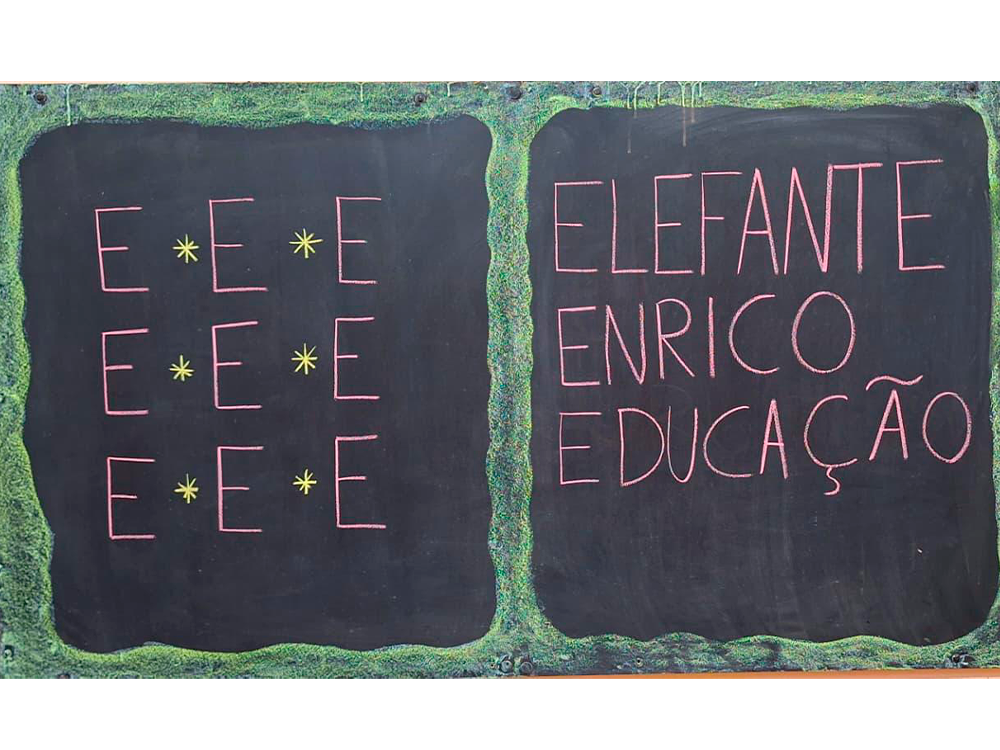 E * E * E
E * E * E
E * E * E
ELEFANTE
ENRICO
EDUCAÇÃO